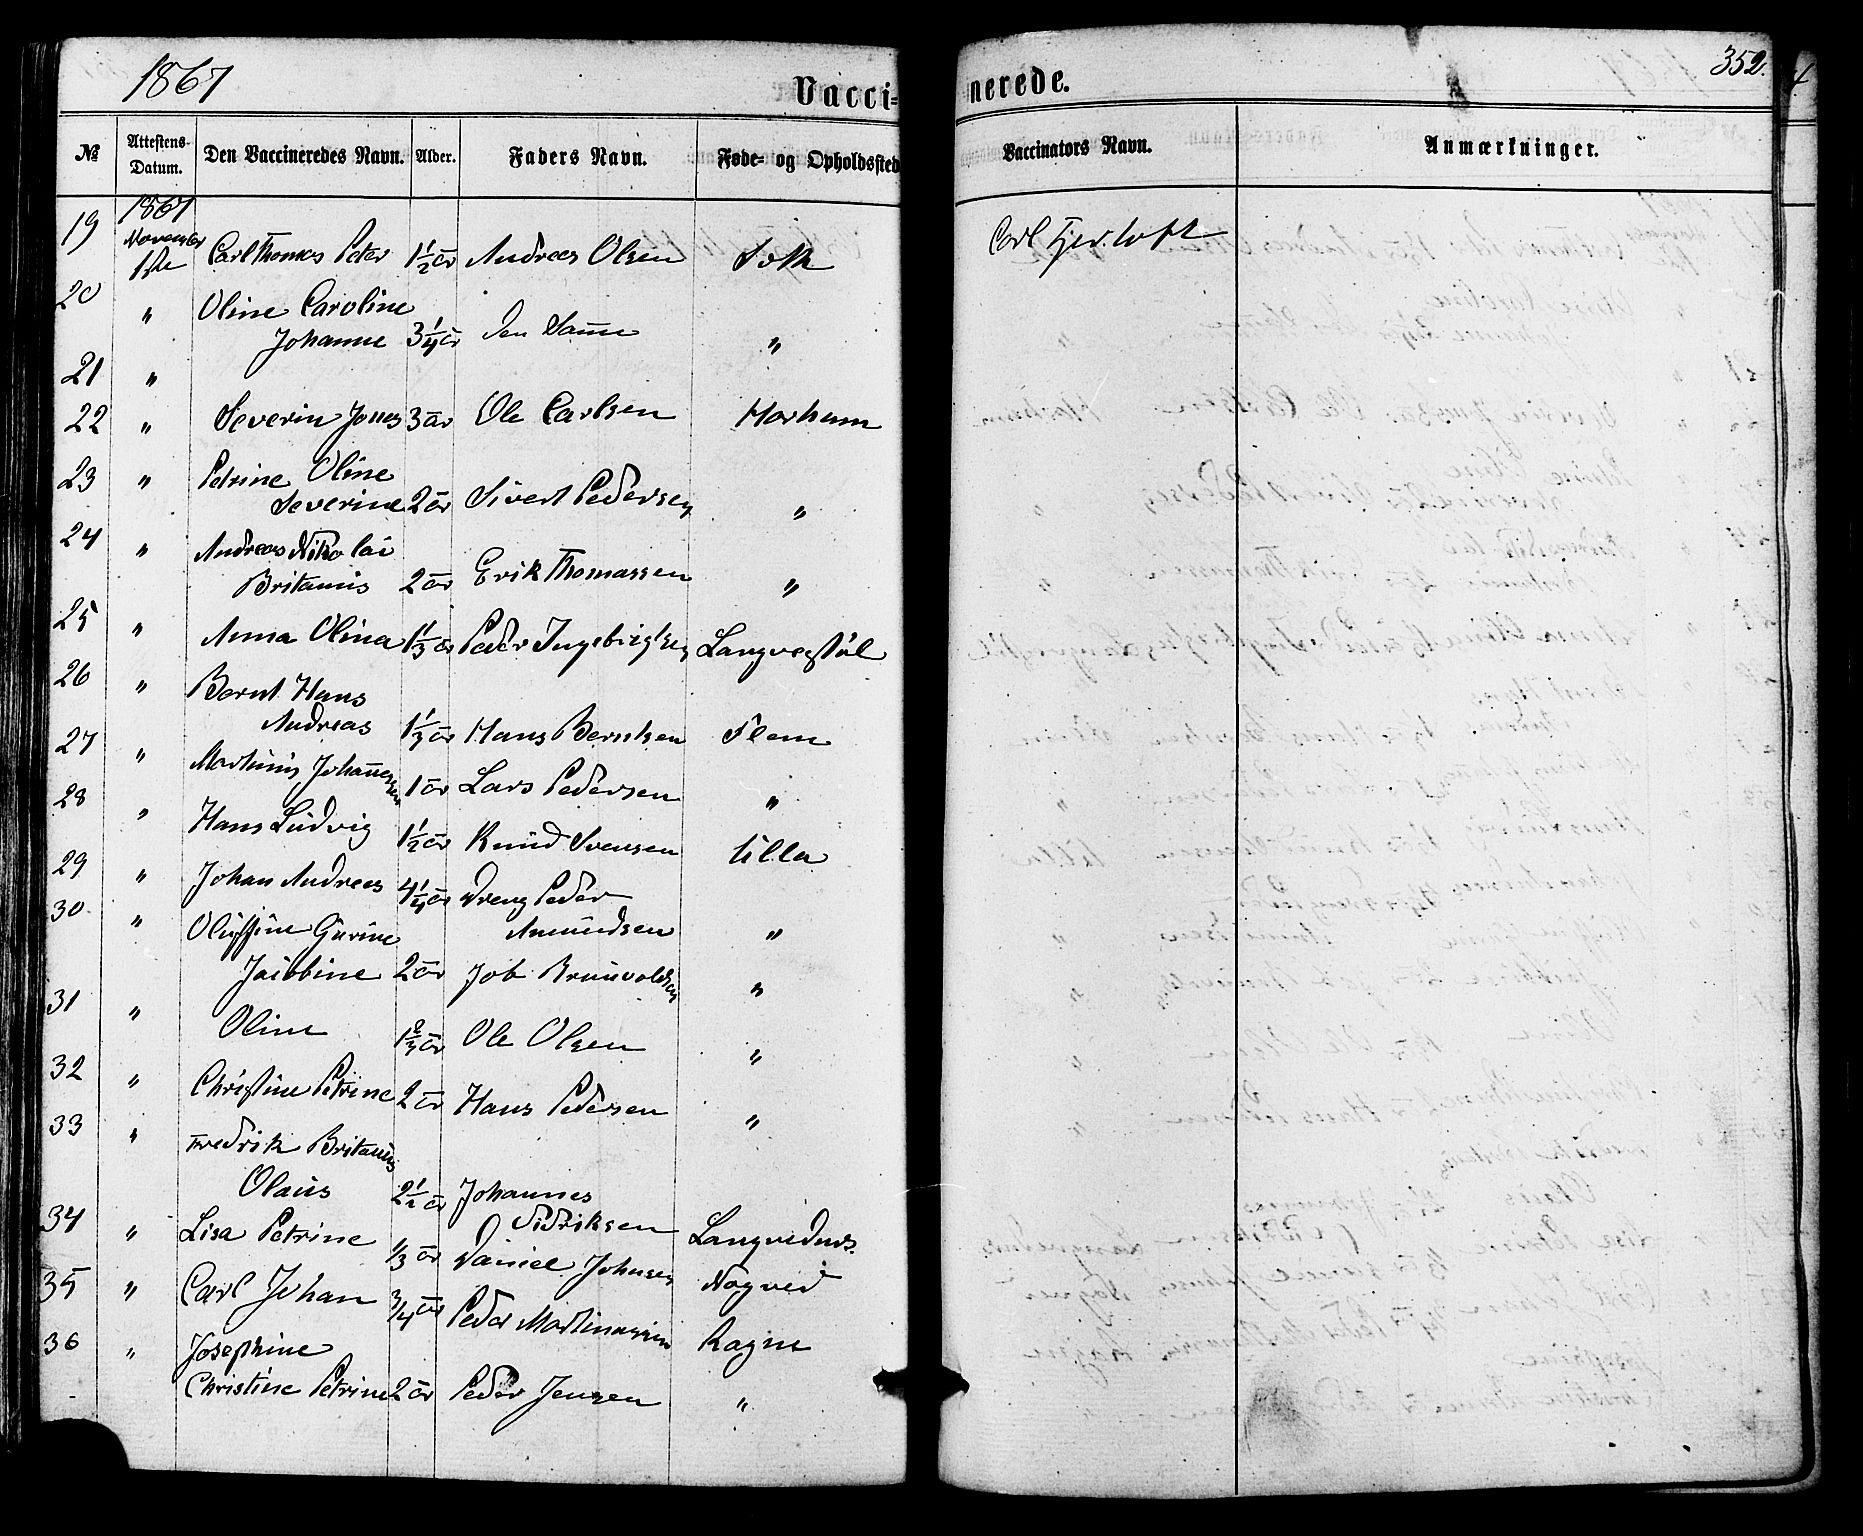 1867
Vacci-
nerede.
352.
№ Attestens-Datum. Den Vaccineredes Navn. Alder. Faders Navn. Føde- og Opholdssted
Vaccinators Navn. Anmærkninger.
1867
19 November 1ste Carl Thomas Peter 1 1/2 år Andreas Olsen
Carl
20 " Oline Caroline
Johanne 3 1/4 år den Samme "
21 "
22 " Severin Jonas 3 år Ole Carlsen Harham
23 " Petrine Oline
Severine 2 år Sivert Pedersen "
24 " Andreas Nikolai
Britanius 2 år Erik Thomassen "
25 " Anna Olina 1 1/3 år Peder Ingebrigtsen
26 " Bernt Hans
Andreas 1 1/3 år Hans Berntsen Flem
27 " Martinus Johannesen 1 år Lars Pedersen "
28 " Hans Ludvig 1 1/2 år Knud Svensen Ulla
29 " Johan Andreas 4 1/4 år Dreng Peder
Amundsen "
30 " Gurine
Jacobine 2 år Job "
31 " Oline 1 2/3 år Ole Olsen "
32 " Christine Petrine 2 år Hans Pedersen "
33 " Fredrik Britanius
Olaus 2 1/2 år Johannes
Didriksen
34 " Lisa Petrine 1/3 år Daniel Johnsen
35 " Carl Johan 3/4 år Peder Martinussen
36 " Josephine
Christine Petrine 2 år Peder Jensen "